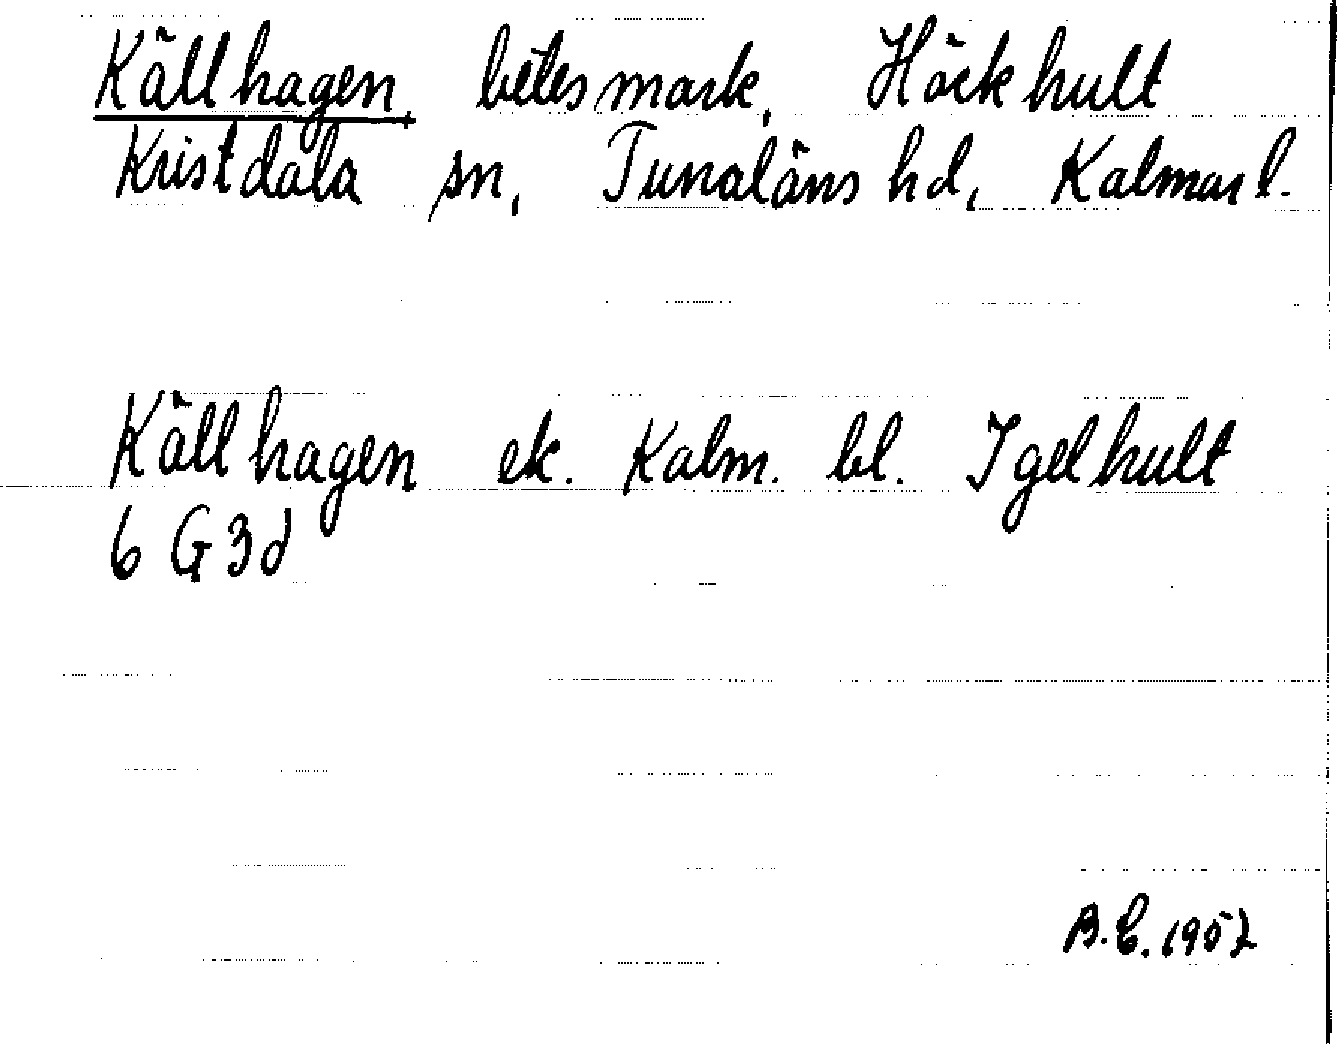 Källhagen, betesmark, Höckhult
Kristdala sn, Tunaläns hd, Kalmar l.
Källhagen ek. Kalm. bl. Igelhult
6 G 3d
B.E. 1952